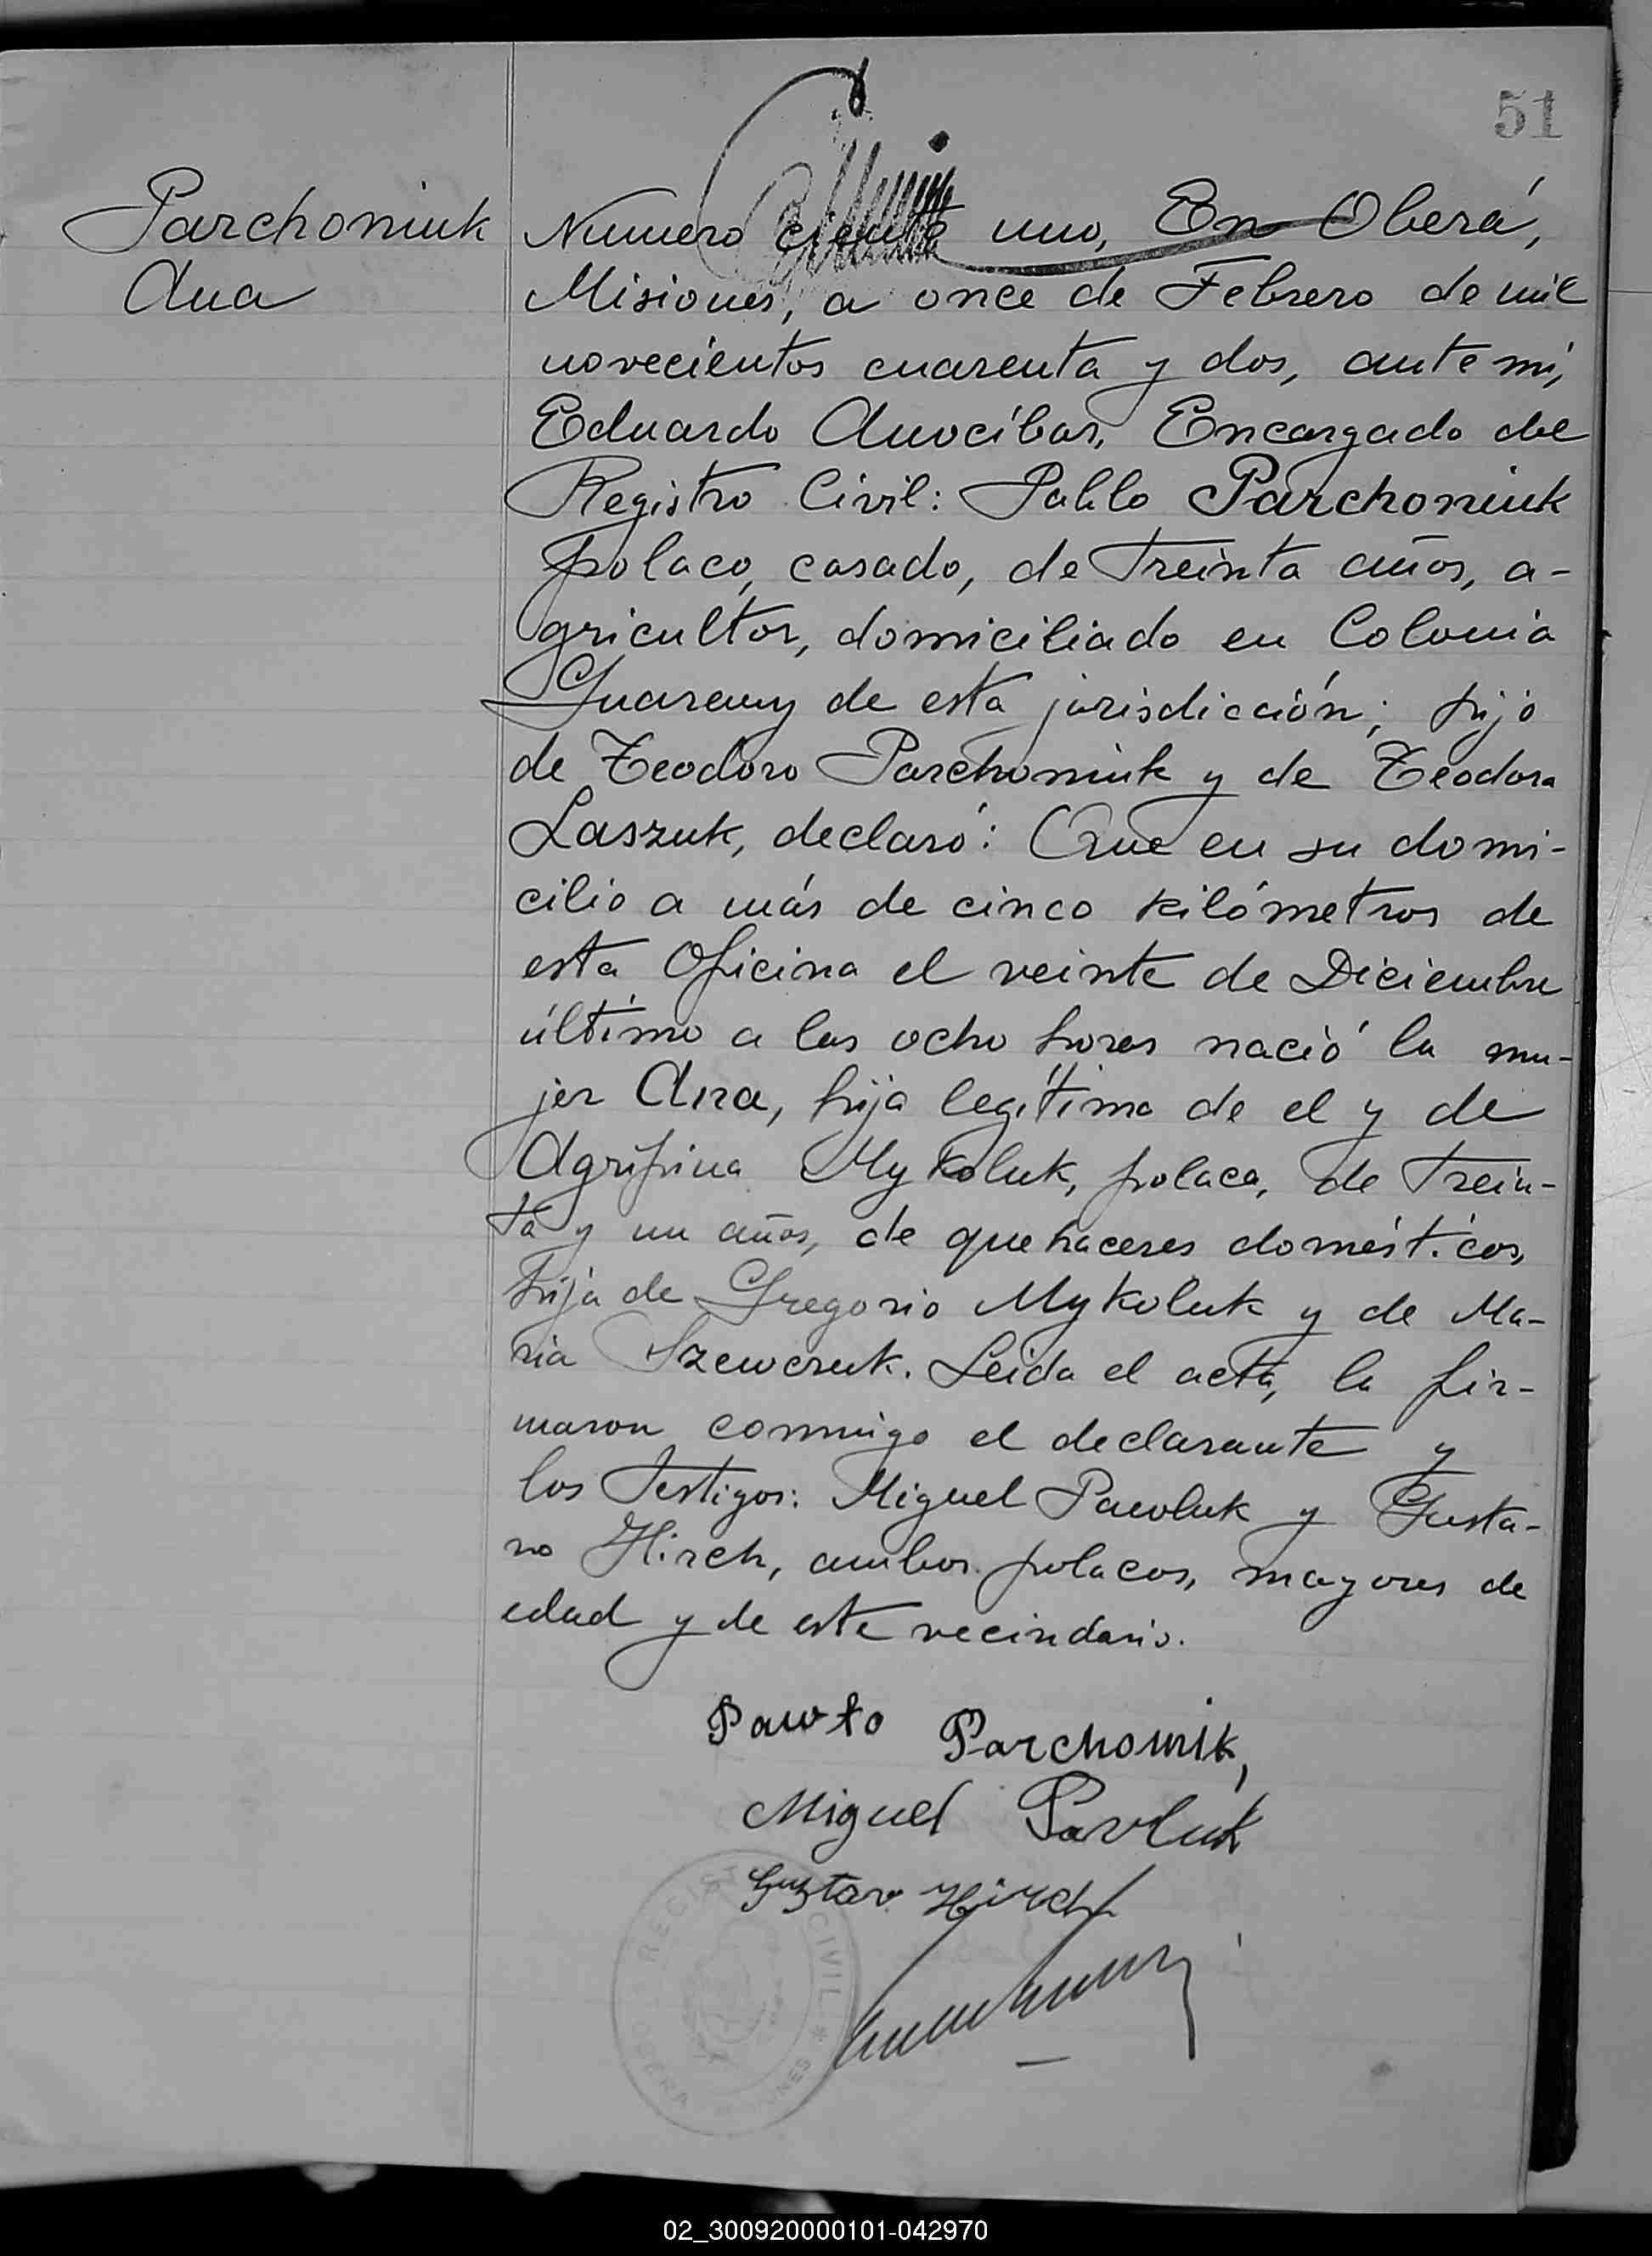 51
Parchoniuk
Ana
Numero ciento uno, En Oberá,
Misiones, a once de Febrero de mil
novecientos cuarenta y dos, ante mí,
Eduardo Anocíbar, Encargado del
Registro Civil: Pablo Parchoniuk
polaco, casado, de treinta años, a-
gricultor, domiciliado en Colonia
Guarany de esta jurisdicción; hijo
de Teodoro Parchoniuk y de Teodora
Laszuk, declaró: Que en su domi-
cilio a más de cinco kilómetros de
esta Oficina el veinte de Diciembre
último a las ocho horas nació la mu-
jer Ana, hija legítima de el y de
Agripina Mykoluk, polaca, de trein-
ta y un años, de quehaceres domésticos,
hija de Gregorio Mykoluk y de Ma-
ria Szewczuk. Leida el acta, la fir-
maron conmigo el declarante y
los testigos: Miguel Pawluk y Gusta-
vo Hirch, ambos polacos, mayores de
edad y de este vecindario.
Pawło Parchomik,
Miguel Pavluk
Gustav Hirch
REGISTRO CIVIL * MISIONES OBERA
02_300920000101-042970